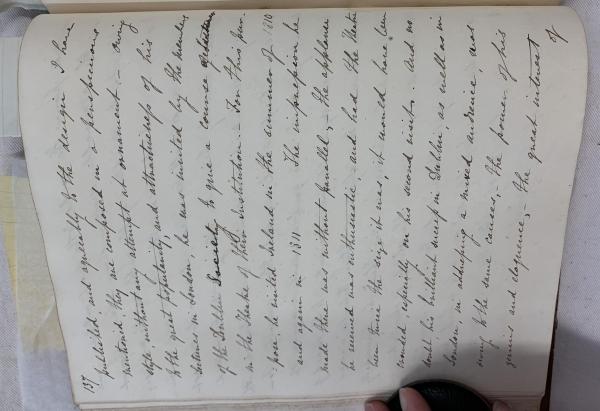 137
published and agreeably to the design I have
mentioned they are composed in a perspicuous
style without any attempt at ornament. – owing
to the great popularity and attractiveness of his
lectures in London, he was invited by the members
of the Dublin Society to give a course of lectures
in the Theatre of their Institution. – For this pur-
pose he visited Ireland in the summer of 1810
and again in 1811 The impression he
made there was without parallel; – the applause
he received was enthusiastic and had the Theatre
been twice the size it was, it would have been
crowded, especially on his second visit. And no
doubt his brilliant success in Dublin, as well as in
London, in addressing a mixed audience, was
owing to the same causes, – The power of his
genius and eloquence, – The great interest
of